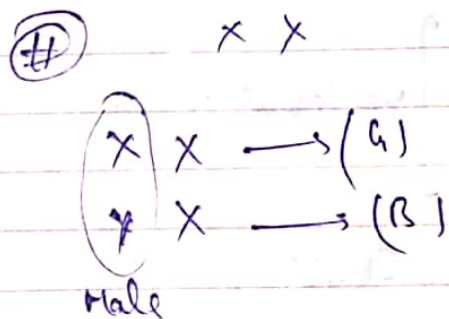 # X X
X X → (G)
Y X → (B)
Male